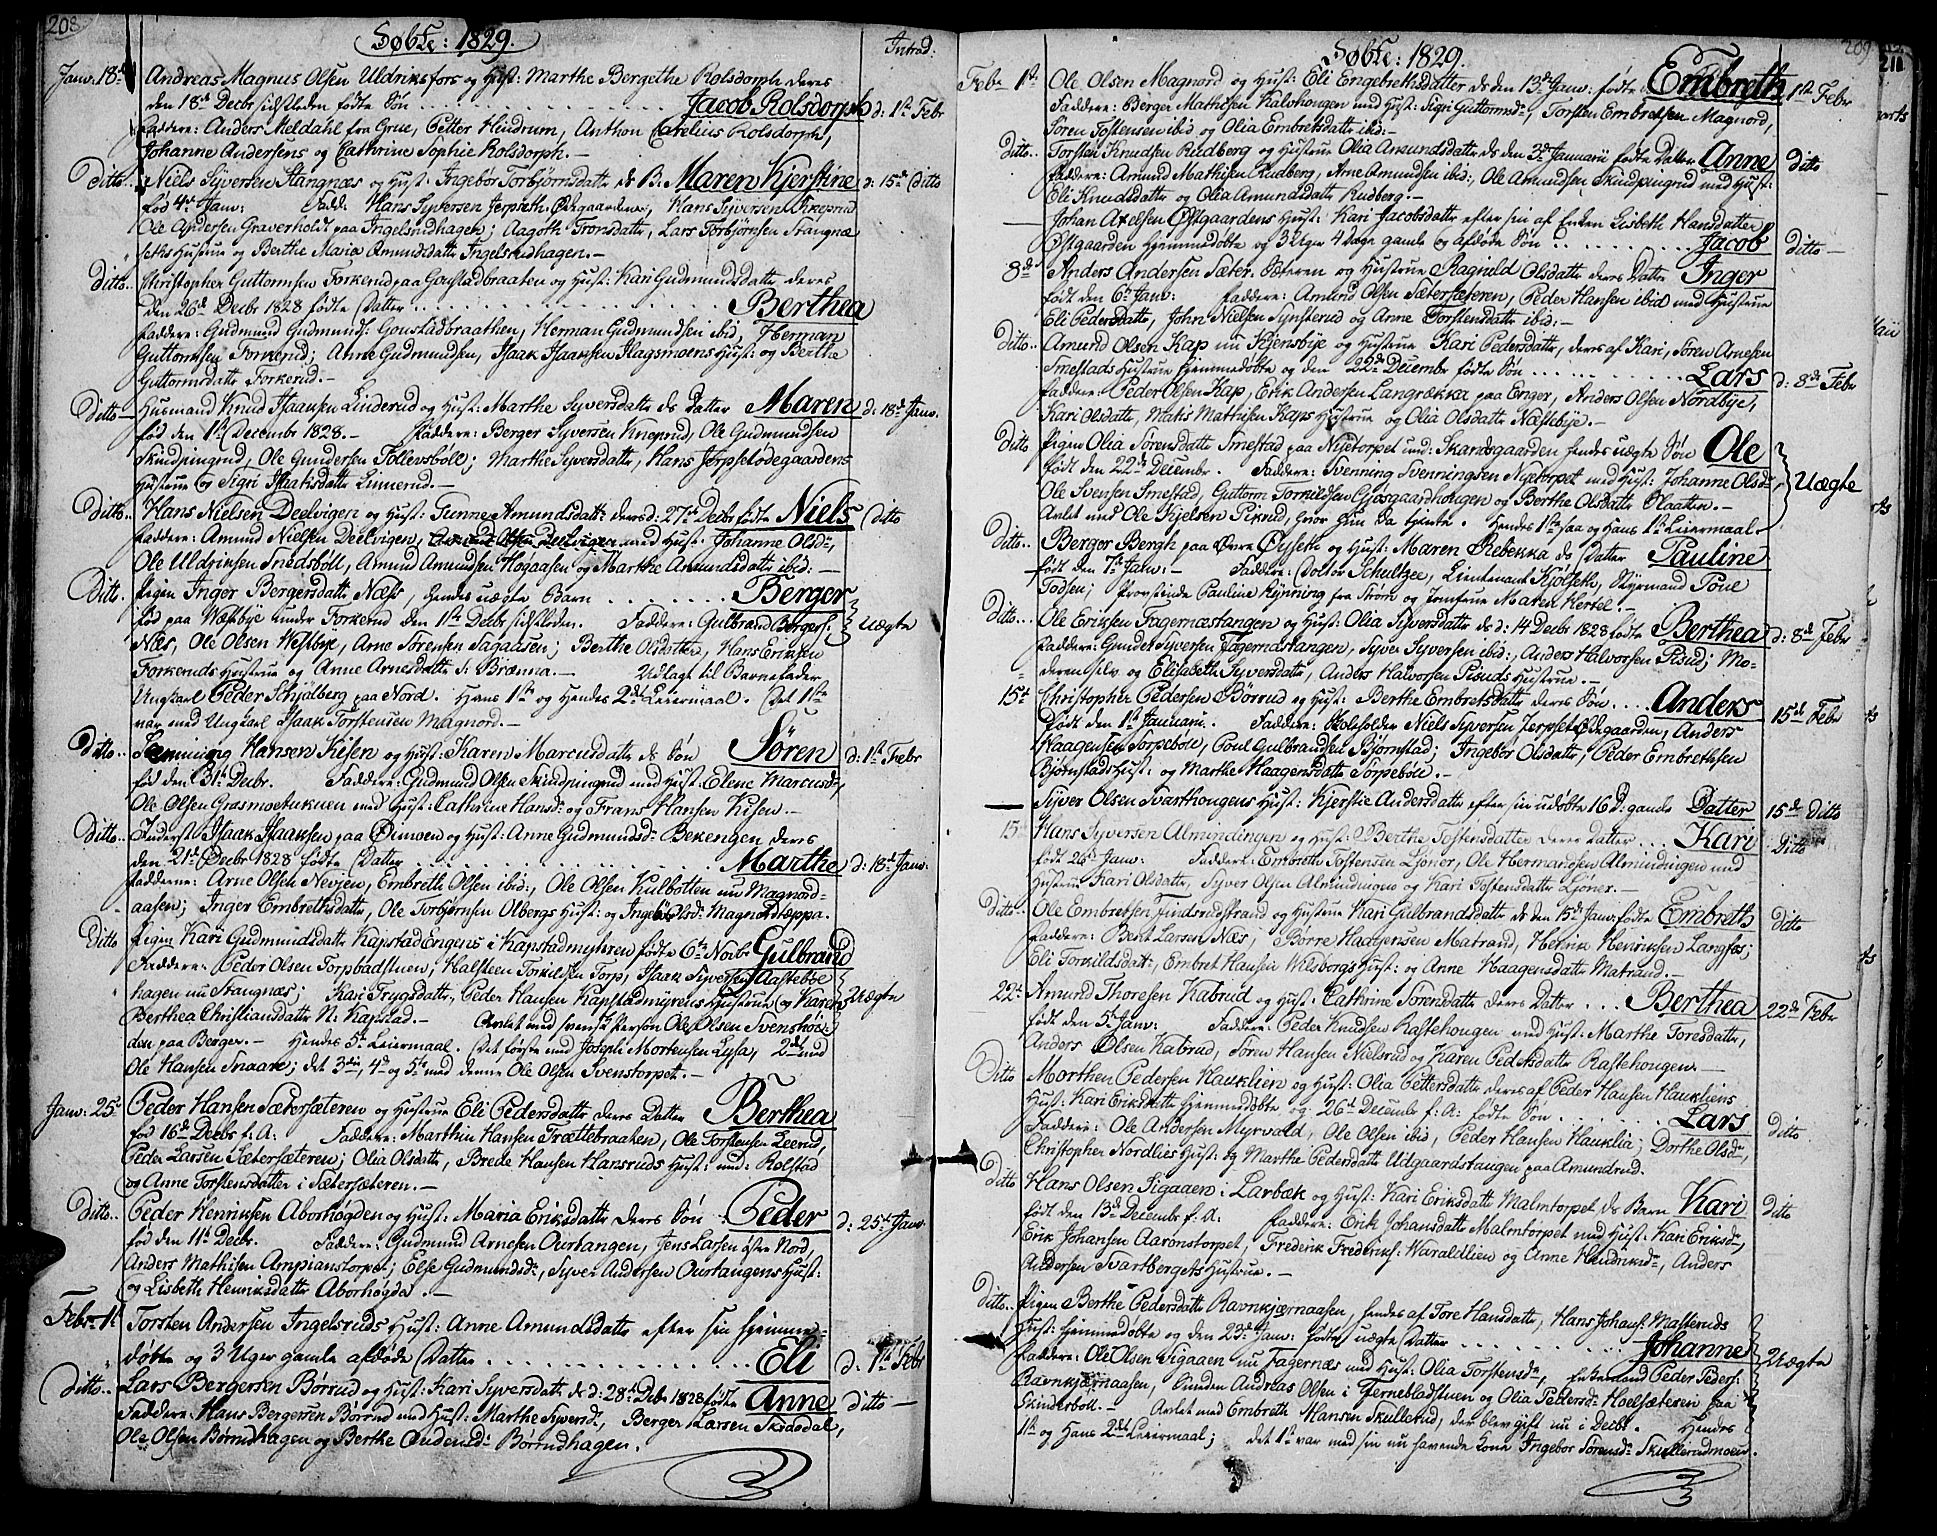 208
Døbte: 1829.
Introd:
Janv: 18de Andreas Magnus Olsen Uldriksfors og Hust: Marthe Bergethe Rolsdorph deres
den 18de Decbr sidstleden fødte Søn . . . Jacob Rolsdorph d: 1ste Febr
Faddere: Anders Meldahl fra Grue, Petter Hindrum, Anthon Carelius Rolsdorph,
Johanne Andersens og Cathrine Sophie Rolsdorph. -
Ditto.. Niels Syversen Stangnæs og Hust: Ingebor Torbjørnsdatter ds B: Maren Kjerstine d: 15de Ditto
fød 4de Janv: Fadd: Hans Syversen Jerpseth Ødegaarden, Hans Syversen
Ole Andersen Graverholdt paa Ingelsrudhagen; Aagoth Tronsdatter, Lars Torbjørnsen Stangnæ
Hustrue og Berthe Maria Amundsdatter Ingelsrudhagen. -
Ditto.. Christopher Guttormsen Forkerud paa Goustadbraaten og Hust: Kari Gudmundsdatter deres
den 26de Decbr 1828 fødte Datter . . . Berthea
Faddere: Gudmund Gudmunds: Goustadbraathen, Herman Gudmundsen ibid, Herman
Guttormsen Forkerud; Anne Gudmundsen, Isaak Isaaksen Hagsmoens Hust: og Berthe
Guttormsdatter Forkerud. -
Ditto - Husmand Knud Isaaksen Linderud og Hust: Marthe Syversdatter ds Datter Maren d: 18de Janv:
fød den 1ste Decembr 1828. - Faddere: Berger Syversen Kneprud, Ole Gudmundsen
Skindpungrud, Ole Gundersen Tollevsboll; Marthe Syversdatter, Hans Jerpsetødegaardens
Hustrue og Sigri Isaaksdatter Linnerud. -
Ditto.. Hans Nielsen Deelvigen og Hust: Gunne Amundsdatter deres d: 27de Decbr fødte Niels Ditto
Faddere: Amund Nielsen Deelvigen, med Hust: Johanne Olsdr,
Ole Uldriksen Snedsboll, Amund Amundsen Hogaasen og Marthe Amundsdatter ibid: -
Ditto. Pigen Inger Bergersdatter Næss, hendes uægte Barn . . . Berger
fød paa Westbye under Forkerud den 11te Decbr sidstleden. Faddere: Gulbrand Bergers: Uægte
Næs, Ole Olsen Westbye, Arne Sørensen Sagaasen; Berthe Olsdatter, Hans Eriksen
Forkeruds Hustrue og Anne Arnesdatter S: Brænna. - Udlagt til Barnefader
Ungkarl Peder Schjølberg paa Nord. Hans 1ste og Hendes 2det Leiermaal. Det 1ste
var med Ungkarl Isaak Torstensen Magnord. -
Ditto.. Hansen Kisen og Hust: Karen Marcusdatter ds Søn Søren d: 1ste Febr
fød den 31te Decbr. Faddere: Gudmund Olsen Skindpungrud med Hust: Elene Marcusdr,
Ole Olsen Grasmoetuknen med Hust: Cathrine Hansdr og Frans Hansen Kisen. -
Ditto.. Inderst Isaak Isaaksen paa Dimoen og Hust: Anne Gudmundsdr Bekengen deres
den 21de Decbr 1828 fødte Datter . . . Marthe d: 18de Janv:
Fadderne: Arne Olsen Nevjen, Embreth Olsen ibid:, Ole Olsen Kulbotten nu Magnord-
aasen; Inger Embrethsdatter, Ole Torbjørnsen Olbergs Hust: og Ingebor Olsdr Magnordtæppa.
Ditto Pigen Kari Gudmundsdatter Kapstad Engens i Kapstadmyhren fødte 6te Novbr Gulbrand
Faddere: Peder Olsen Torpbadstuen, Halsteen Torkilsen Torp, Isaak Syversen Aastebøe
hagen nu Stangnæs; Kari Trygsdatter, Peder Hansen Kapstadmyrens Hustrue og Karen Uægte
Berthea Christiansdatter N: Kapstad. - Avlet med svensk Person Ole Olsen Svenshöi
den paa Berger. - Hendes 5te Leiermaal. Det første med Joseph Mortensen Lysa, 2det med
Ole Hansen Snaare; det 3die, 4de og 5te med denne Ole Olsen Svenstorpet. -
Janv: 25de Peder Hansen Sætersæteren og Hustrue Eli Pedersdatter deres Datter Berthea
fød 16de Decbr f: A: Faddere: Marthin Hansen Trættebraaten, Ole Torstensen Leerud,
Peder Larsen Sætersæteren; Olia Olsdatter, Brede Hansen Hansruds Hust: und: Rolstad
og Anne Torstensdatter i Sætersæteren. -
Ditto.. Peder Henriksen Aborhøgden og Hust: Maria Eriksdatter deres Søn Peder d: 25de Janv:
fød den 11te Decbr. Faddere: Gudmund Arnesen Ourtangen, Jens Larsen østre Nord,
Anders Mathisen Ampianstorpet; Else Gudmundsdr, Syver Andersen Ourtangens Hust:
og Lisbeth Henriksdatter Aborhøgda. -
Febr: 1ste Torsten Andersen Ingelsruds Hust: Anne Amundsdatter efter sin hjemme-
døbte og 3 Uger gamle afdøde Datter . . . Eli d: 1ste Febr
Ditto.. Lars Bergersen Børrud og Hust: Kari Syversdatter ds d: 28de Decbr 1828 fødte Anne Ditto -
Faddere: Hans Bergersen Børrud med Hust: Marthe Syversdr, Berger Larsen Skodsdal,
Ole Olsen Børrudhagen og Berthe Børrudhagen.
209
211
Døbte: 1829.
Febr 1ste Ole Olsen Magnord og Hust: Eli Engebrethsdatter ds den 13de Janv: fødte Embreth 1ste Febr
Faddere: Berger Mathisen Kalvhougen med Hust: Sigri Guttormsdr, Torsten Embretsen Magnord,
Søren Tostensen ibid og Olia Embretsdatter ibid: -
Ditto.. Torsten Knudsen Rudberg og Hustrue Olia Amundsdatter ds den 3de Januarii fødte Datter Anne Ditto
Faddere: Amund Mathisen Rudberg, Arne Amundsen ibid:, Ole Amundsen Skindpungrud med Hust:
Eli Knudsdatter og Olia Amundsdatter Rudberg. -
- Johan Axelsen Østgaardens Hust: Kari Jacobsdatter efter sin af Enken Lisbeth Hansdatter
Østgaarden hjemmedøbte og 3 Uger 4 Dage gamle og afdøde Søn . . . Jacob Ditto -
8de Anders Andersen Sæter Sæteren og Hustrue Ragnild Olsdatter deres Datter Inger
født den 6te Janv: Faddere: Amund Olsen Sætersæteren, Peder Hansen ibid med Hustrue
Eli Pedersdatter, John Nielsen Synsterud og Anne Torstensdatter ibid: -
Ditto.. Amund Olsen Kap nu Kjensbye og Hustrue Kari Pedersdatter, deres af Kari, Søren Arnesen
Smestads Hustrue hjemmedøbte og den 22de Decembr fødte Søn . . . Lars d: 8de Febr
Faddere: Peder Olsen Kap, Erik Andersen Langrækka paa Enger, Anders Olsen Nordbye,
Kari Olsdatter, Mathis Mathisen Kaps Hustrue og Olia Olsdatter Næstbye. -
Ditto Pigen Olia Sørensdatter Smestad paa Nyetorpet und: Skandsgaarden hendes uægte Søn Ole
født den 22de Decembr. Faddere: Svenning Svenningsen Nyetorpet med Hust: Johanne Olsdr, Uægte
Ole Svensen Smestad, Guttorm Torkildsen Gjøsgaardhougen og Berthe Olsdatter Plaaten. -
Avlet med Ole Kjelsen Pikrud, hvor hun da tjente. Hendes 1ste saa og Hans 1ste Leiermaal -
Ditto.. Berger Bergh paa Øvre Øiseth og Hust: Maren Rebekka ds Datter Pauline
født den 7de Janv: - Faddere: Doctor Schultzee, Lieutenant Kjølseth, Styrmand Poul
Todsen; Provstinde Pauline Kynning fra Strøm og Jomfrue Maren Hertel. -
Ditto... Ole Eriksen Fagernæstangen og Hust: Olia Syversdatter ds d: 14 Decbr 1828 fødte Berthea d: 8de Febr
Faddere: Gunder Syversen Fagernæstangen, Syver Syversen ibid:, Anders Halvorsen Pisud; Mo-
deren selv og Elisabeth Syversdatter, Anders Halvorsen Pisuds Hustrue. -
15de Christopher Pedersen Børrud og Hust: Berthe Embretsdatter deres Søn.... Anders 15de Febr
født den 1ste Januarii. Faddere: Niels Syversen Jerpset Ødegaarden, Anders
Haagensen Torpebøle, Poul Gulbrandsen Bjørnstad; Ingebor Olsdatter, Peder Embrethsen
Bjørnstads Hust: og Marthe Haagensdatter Torpebøle. -
- Syver Olsen Svarthougens Hust: Kjerstie Andersdatter efter sin udøbte 16 D: gamle Datter 15de Ditto
15de Hans Syversen Almindingen og Hust: Berthe Tostensdatter deres Datter . . . Kari Ditto
født 26de Janv: Faddere: Embreth Tostensen Ljøner, Ole Hermansen Almindingen med
Hustrue Kari Olsdatter, Syver Olsen Almindingen og Kari Tostensdatter Ljøner. -
Ditto.. Ole Embretsen Findsrudstrand og Hustrue Kari Gulbrandsdatter ds den 15de Janv: fødte Embreth Ditto
Faddere: Bent Larsen Næs, Børre Haagensen Matrand, Henrik Henriksen Langfos;
Eli Torkildsdatr, Embret Hansen Wilsbergs Hust: og Anne Haagensdatter Matrand. -
22de Amund Thoresen Kabrud og Hust: Cathrine Sørensdatter deres Datter . . . Berthea 22de Febr
født den 5te Janv: Faddere: Peder Knudsen Rastehougen med Hust: Marthe Toresdatter,
Anders Olsen Kabrud, Søren Hansen Nielsrud og Karen Pedersdatter Rastehougen. -
Ditto Morthen Pedersen Hauklien og Hust: Olia Pettersdatter deres af Peder Hansen Haukliens
Hust: Kari Eriksdatter hjemmedøbte og 26de Decembr f: A: fødte Søn . . . Lars Ditto
Faddere: Ole Andersen Myrvald, Ole Olsen ibid, Peder Hansen Hauklia; Dorthe Olsdr,
Christopher Nordlies Hust: og Marthe Pedersdatter Udgaardstangen paa Amundrud.
Ditto Hans Olsen Sigaaen i Larbæk og Hust: Kari Eriksdatter Malmtorpet ds Barn Kari Ditto
født den 13de Decembr f: A: Faddere: Erik Johansdatter Malmtorpet med Hust: Kari Eriksdr,
Erik Johansen Aaronstorpet, Frederik Frederiks: Waraldlien og Anne Hendriksdr, Anders
Andersen Svartbergets Hustrue. -
Ditto.. Pigen Berthe Pedersdatter Ravnkjærnaasen, hendes af Tore Hansdatter, Hans Johans: Masteruds
Hust: hjemmedøbte og den 23de Janv: fødte uægte Datter . . . Johanne Uægte
Faddere: Ole Olsen Sigaaen nu Fagernæs med Hust: Olia Torstensdr, Enkemand Peder Peders:
Ravnkjærnaasen, Andreas Olsen i Fernebladstuen og Olia Pedersdr Hoelsæteren paa
Skinderboll. - Avlet med Embreth Hansen Skullerud, der blev gift nu i Decbr. Hendes
1ste og Hans 2det Leiermaal; det 1ste var med sin nu havende Kone Ingebor Sørensdr Skullerudmoen.